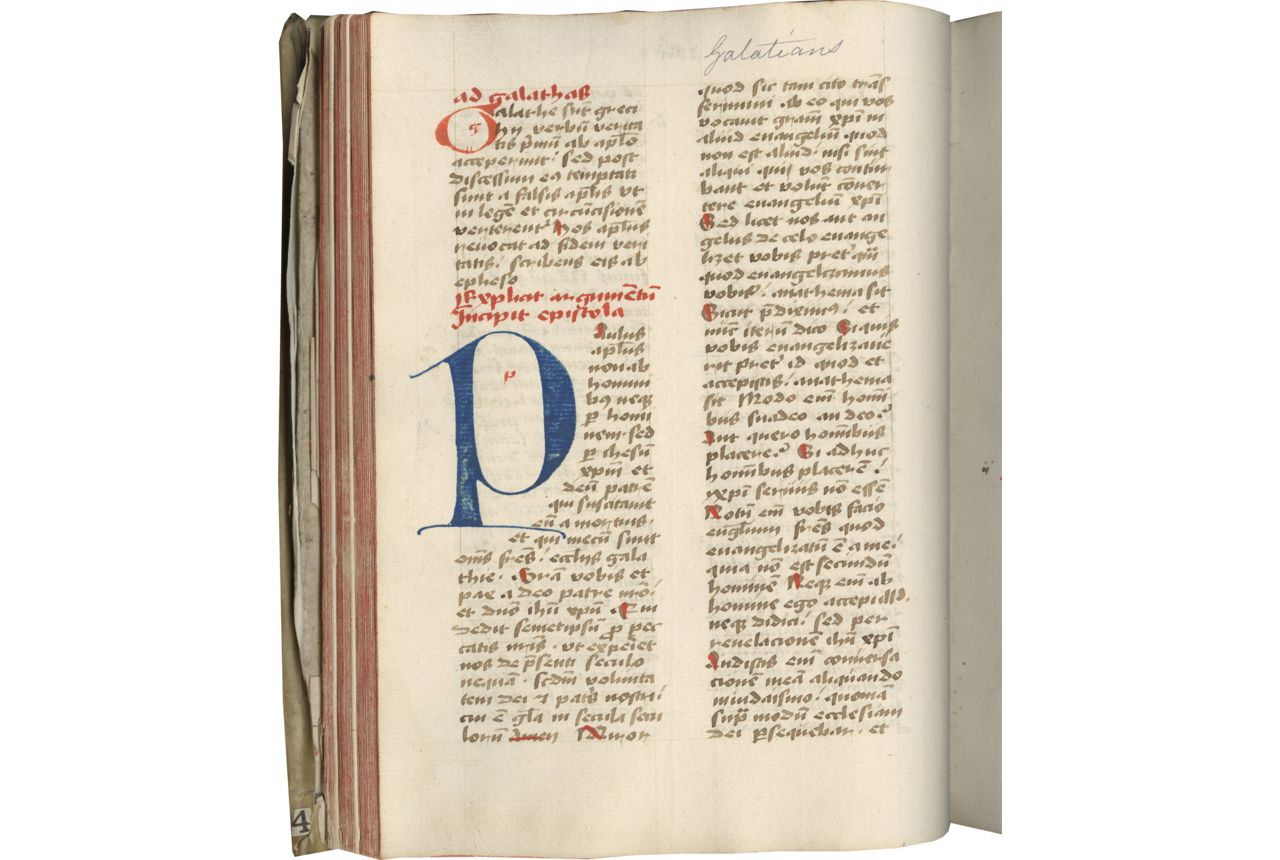 Galatians
ad galathas
Galathe sūt greci
hy verbū verita
tis p̄mū ab apl̄o
acceperunt. sed post
discessum eꝰ temptati
sunt a falsis apl̄is vt
in legē et circūcisionē
verterentʳ Hos apl̄us
reuocat ad fidem veri
tatis. scribens eis ab
epheso
Explicit argumētū
Incipit epistola
p
Paulus
apl̄us
non ab
homini
bꝰ neqꝫ
ꝑ homi
nem. sed
ꝑ ihesū
xp̄m et
deū patrē
qui suscitauit
eū a mortuis.
et qui mecū sunt
om̄s fr̄es. eccl̄iis gala
thie. Gr̄a vobis et
pax a deo patre nr̄o.
et dn̄o ihū xp̄o Qui
dedit semetipsū ꝓ pec
catis nr̄is. vt eriperet
nos de p̄senti seculo
nequā. scdm volunta
tem dei ⁊ patris nostri.
cui ē gl̄a in secula secu
lorū Amen Miror
quod sic tam cito trās
ferimini ab eo qui vos
vocauit in grām xp̄i in
aliud euangeliū. quod
non est aliud. nisi sunt
aliqui qui vos contur
bant et volūt cōuer
tere euangeliū xp̄i
Sed licet nos aut an
gelus de celo euange
lizet vobis pretʳ qȝ
quod euangelizauimus
vobis. anathema sit
Sicut p̄diximꝰ. et
nūc iterū dico Si quis
vobis euangelizaue
rit pretʳ id quod et
accepistis. anathema
sit Modo em̄ homi
bus suadeo an deo?
Aut quero hom̄ibus
placere? Si adhuc
hom̄ibus placerē.
xp̄i seruus nō essē
Notū em̄ vobis facio
eugl̄ium fr̄es quod
euangelizatū ē a me.
quia nō est secundū
hominē Neqꝫ em̄ ab
homine ego accepi illd.
neqꝫ didici. sed per
reuelacionē ihū xp̄i
Audistis em̄ conuersa
cionē meā aliquando
in iudaismo. quoniā
sup̄ modū ecclesiam
dei ꝑsequebar. et
4